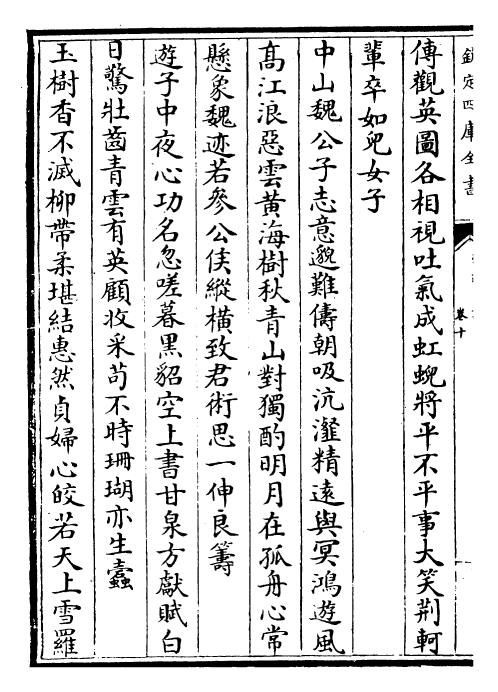 欽定四庫全書
卷十
傳觀英圖各相視吐氣成虹蜺將平不平事大笑荆軻
輩卒如兒女子
中山魏公子志意邈難儔朝吸沆瀣精遠與冥鴻遊風
高江浪惡雲黄海樹秋青山對獨酌明月在孤舟心常
懸象魏迹若參公侯縱横致君術思一伸良籌
遊子中夜心功名忽嗟暮黒貂空上書甘泉方獻賦白
日驚壯齒青雲有英顧收采苟不時珊瑚亦生蠧
玉樹香不滅柳帶柔堪結惠然貞婦心皎若天上雪羅